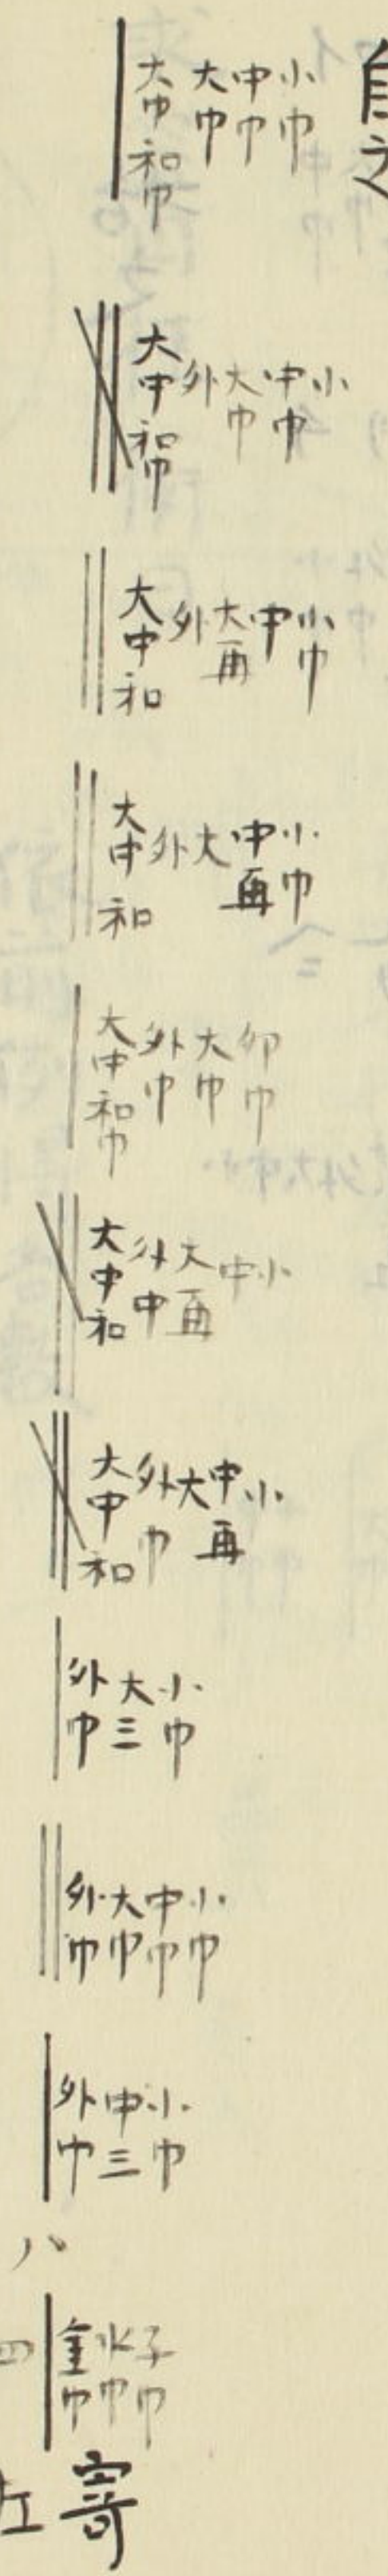 自之
小巾 中巾 大巾 大中和巾
小 中巾 大巾 外 大中和巾
小巾 中 大再 外 大中和
小巾 中再 大 外 大中和
大巾 外巾 大中和巾
小 中 大再 外中 大中和
小 中再 大 外巾 大中和
小巾 大三 外巾
小巾 中巾 大巾 外巾
小巾 中三 外巾
子巾 水巾
寄
八
四
左